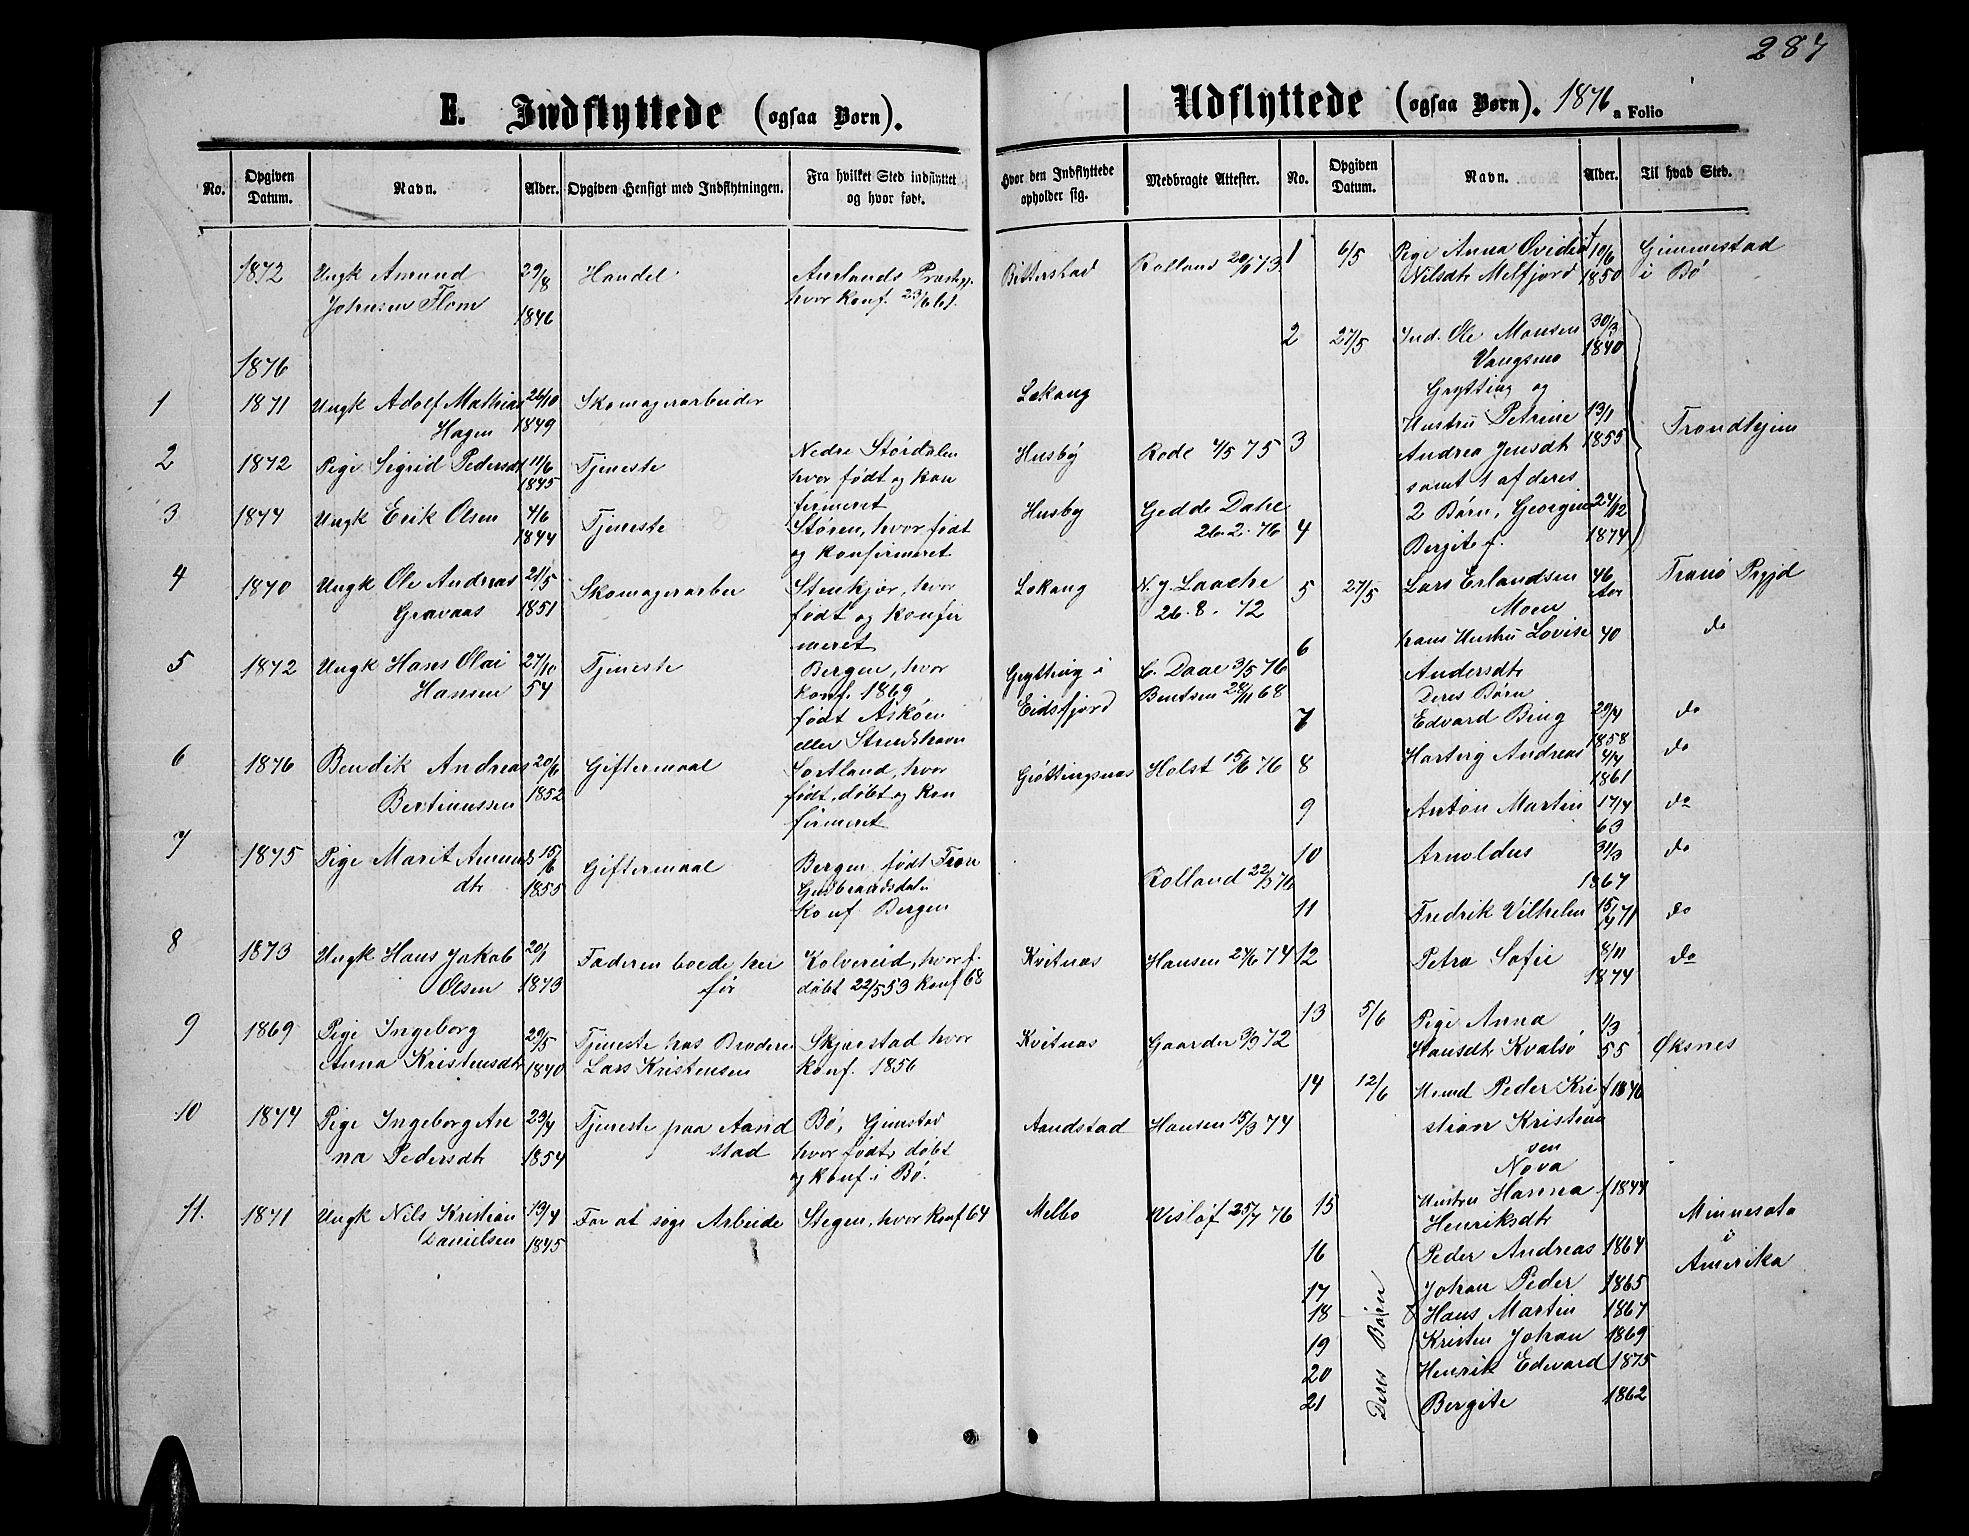 287
E. Indflyttede (ogsaa Børn).
No.
Opgiven Datum.
Navn.
Alder.
Opgiven Hensigt med Indflytningen.
Fra hvilket Sted indflyttet
og hvor født.
Hvor den Indflyttede
opholder sig.
Medbragte Attester.
1872 Ungk Amund 29/8 Handel Aurlands Bitterstad Rolland
Johnsen Flom 1846 hvor konf. 23/6 61.
1876
1 1871 Ungk Adolf Mathias 26/10 Skomagerarbeider Lekang
Hagen 1849
2 1872 Pige Sigrid Pedersdt 11/6 Tjeneste Nedre Størdalen Husby Rode 4/5 75
1845 hvor født og kon
firmeret
3 1874 Ungk Erik Olsen 4/6 Tjeneste Støren, hvor født Husby Gedde Dahe
1844 og konfirmeret 26.2.76
4 1870 Ungk Ole Andreas 21/5 Skomagerarbei Stenkjær, hvor Lekang N. J. Laache
Gravaas 1851 født og konfir 26.8.72
meret
5 1872 Ungk Hans Olai 27/10 Tjeneste Bergen, hvor Grytting i C. Daae 3/5 76
Hansen 54 konf. 1869 Eidsfjord Bentsen 28/11 68
født Askøen
eller Strudshavn
6 1876 Bendik Andreas 20/6 Giftermaal Sortland, hvor Grøttingsnæs Holst 15/6 76
Bertinussen 1852 født, døbt og kon
firmeret
7 1875 Pige Marit Amunds 15/6 Giftermaal Bergen, født Fron Rolland 22/5 76
dtr 1855 Gudbrandsdalen
konf. Bergen
8 1873 Ungk Hans Jakob 20/1 Faderen boede her Kolvereid, hvor f. Kvitnæs Hansen 24/6 74
Olsen 1873 før døbt 22/5 53 konf 68
9 1869 Pige Ingeborg 29/5 Tjeneste hos Broderen Skjærstad hvor Kvitnæs Gaarder 3/9 72
Anna Kristensdtr 1840 Lars Kristensen konf. 1856
10 1874 Pige Ingeborg An 23/4 Tjeneste paa Aand Bø, Gimstad Aandstad Hansen 15/3 74
na Pedersdtr 1854 stad hvor født, døbt
og konf i Bø.
11. 1871 Ungk Nils Kristian 19/4 For at søge Arbeide Stegen, hvor konf 64 Melbo Wisløf 25/7 76
Danielsen 1845
Udflyttede (ogsaa Børn). 1876 a Folio
No.
Opgiven Datum.
Navn.
Alder.
Til hvad Sted.
1 6/5 Pige Anna Ovidia 19/6 Gimmestad
Nilsdtr Melfjord 1850 i Bø
2 27/5 Ind. Ole Monsen 30/3
Vangsmo 1840
Grytting og
3 Hustru Petrine 13/1 Trondhjem
Andrea Jensdtr 1855
samt 1 af deres
4 2 Børn, Georgine 24/12
Bergite f. 1874
5 27/5 Lars Erlandsen 46 Tranø Prgjd
Moen Aar
6 hans Hustru Lovise 40 do
Andersdtr
Deres Børn
7 Edvard Bing 29/4 do
1858
8 Hartvig Andreas 4/4 do
1861
9 Anton Martin 17/4 do
63
10 Arnoldus 31/3 do
1867
11 Fredrik Vilhelm 15/4 71 do
12 Petra Sofie 8/11 do
1874
13 5/6 Pige Anna 1/3
Hansdtr Kvalsø 55 Øksnes
14 12/6 Husmd Peder Kri f 1840
stian Kristian
sen
Nova
15 Hustru Hanna f 1844
Henriksdtr Minnesota
i
Amerika
Deres Børn
16 Peder Andreas 1864
17 Johan Peder 1865
18 Hans Martin 1867
19 Kristen Johan 1869
20 Henrik Edevard 1875
21 Bergite 1862